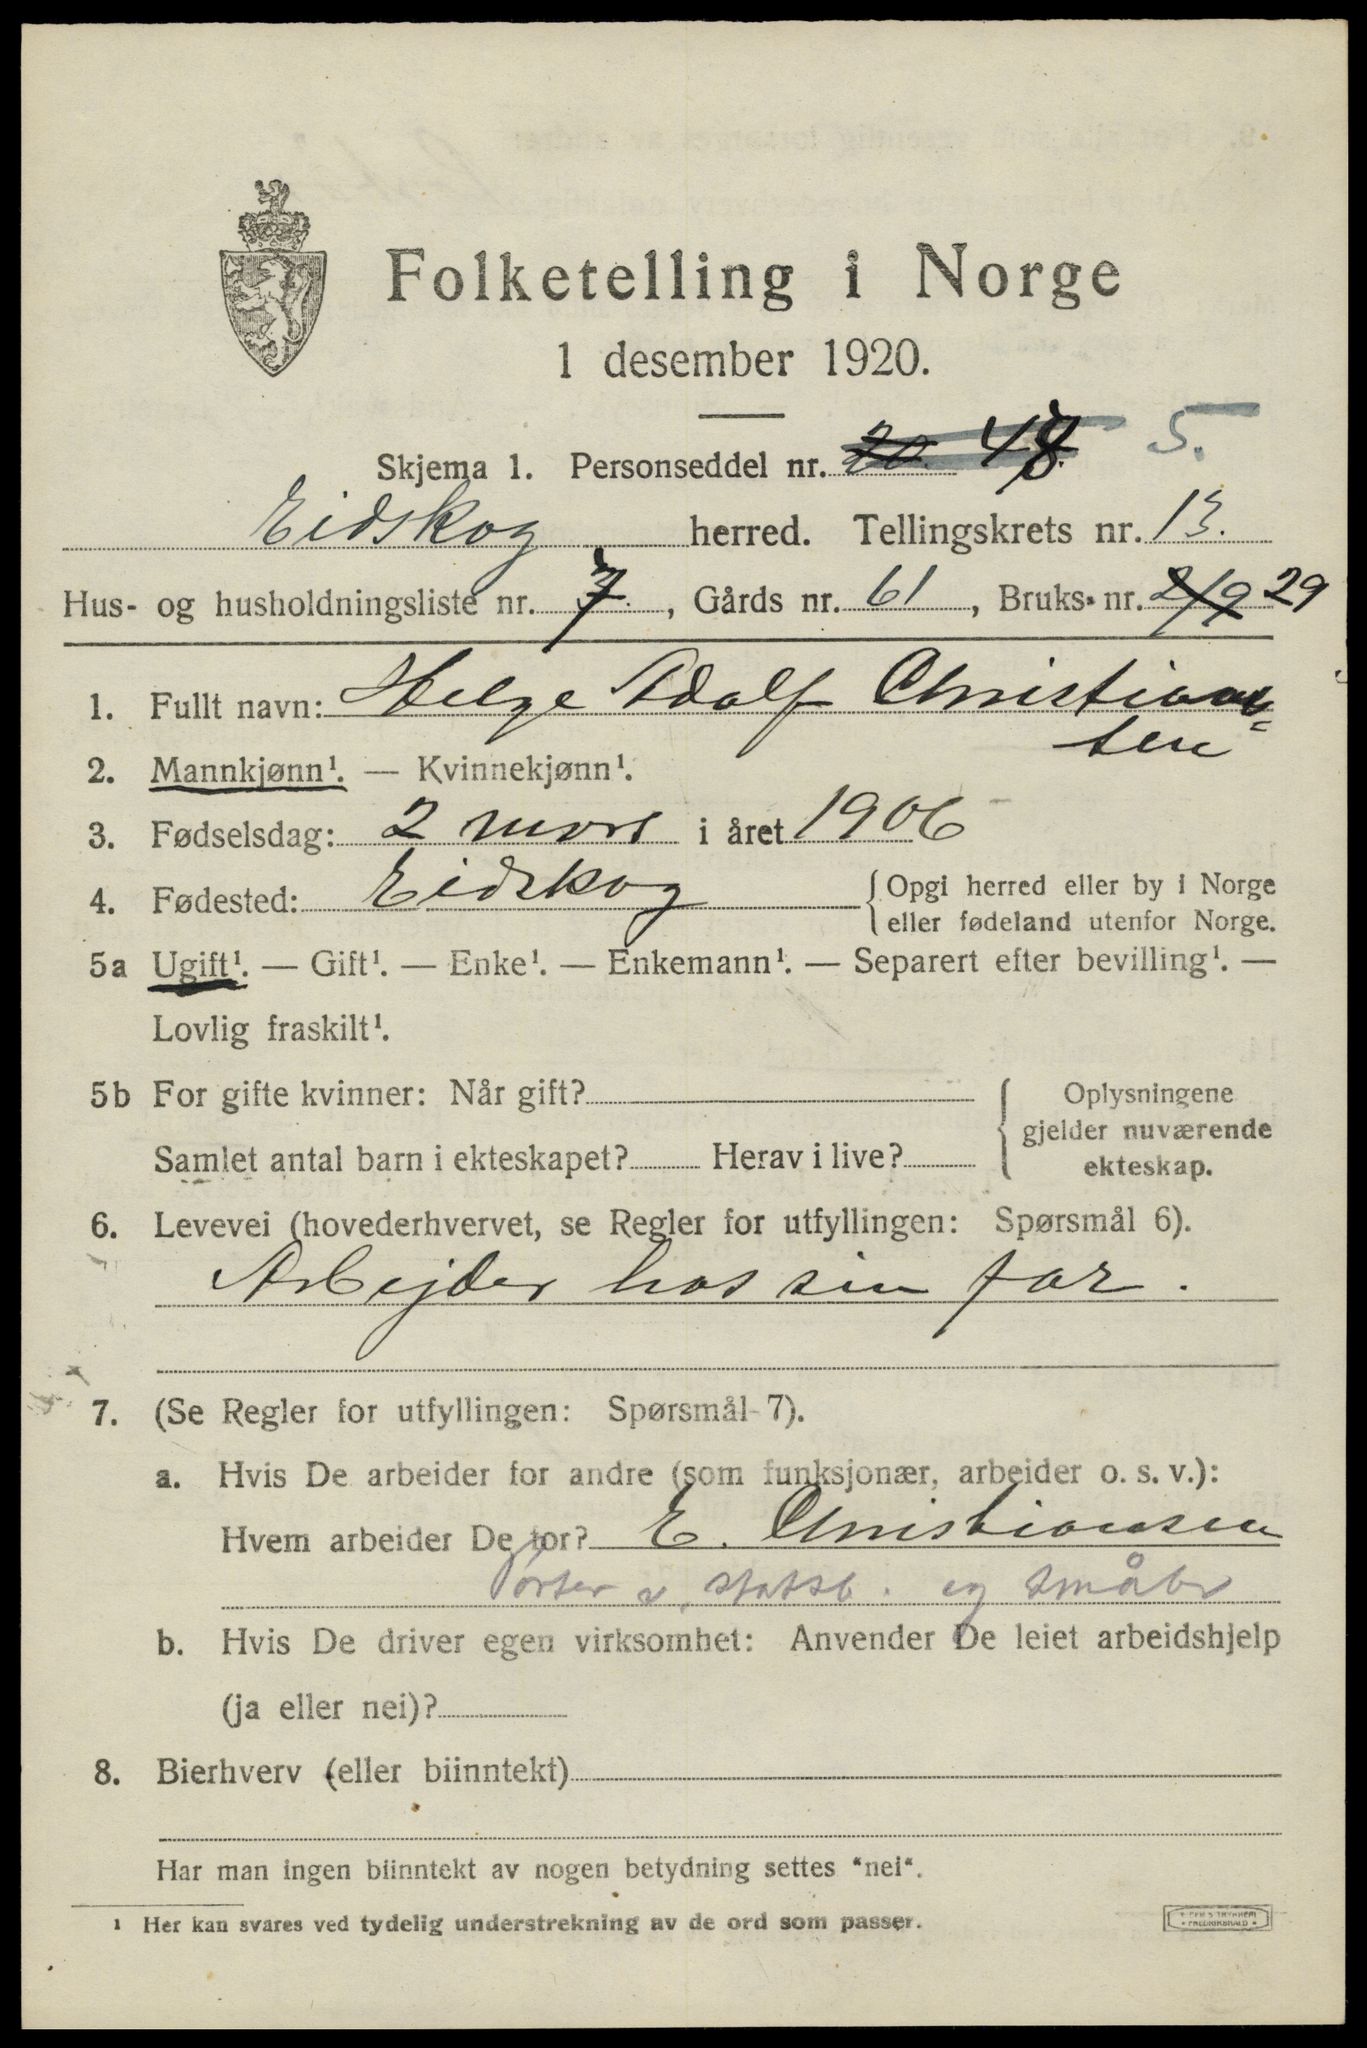 Folketelling i Norge
1 desember 1920.
Skjema 1. Personseddel nr. 20. 48. 5.
Eidskog herred. Tellingskrets nr. 13.
Hus- og husholdningsliste nr. 7, Gårds nr. 61, Bruks nr. 2/9 29
1. Fullt navn: Helge Adolf Christian=
sen
2. Mannkjønn¹. — Kvinnekjønn¹.
3. Fødselsdag: 2 mars i året 1906
4. Fødested: Eidskog {Opgi herred eller by i Norge
eller fødeland utenfor Norge.
5a Ugift¹. — Gift¹. — Enke¹. — Enkemann¹. — Separert efter bevilling¹. —
Lovlig fraskilt¹.
5b For gifte kvinner: Når gift? Oplysningene
gjelder nuværende
Samlet antal barn i ekteskapet? Herav i live? ekteskap.
6. Levevei (hovederhvervet, se Regler for utfyllingen: Spørsmål 6).
Arbejder hos sin far.
7. (Se Regler for utfyllingen: Spørsmål 7).
a. Hvis De arbeider for andre (som funksjonær, arbeider o. s. v.):
Hvem arbeider De for? E. Christiansen
v. statsb. og småbr
b. Hvis De driver egen virksomhet: Anvender De leiet arbeidshjelp
(ja eller nei)?
8. Bierhverv (eller biinntekt)
Har man ingen biinntekt av nogen betydning settes "nei".
¹ Her kan svares ved tydelig understrekning av de ord som passer.